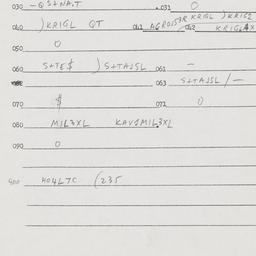 030 -QS+NA.T 031 O
040 )KRIGL QT 041 AGROJSTR KRIGL )KRIGL
042 KRIGL
050 O
060 S+TE$ )S+TAJSL 061 -
063 S+TAJSL/-
070 $ 071 O
080 MIL3XL KAVSMIL3XL
090 O
HO4LTC (235